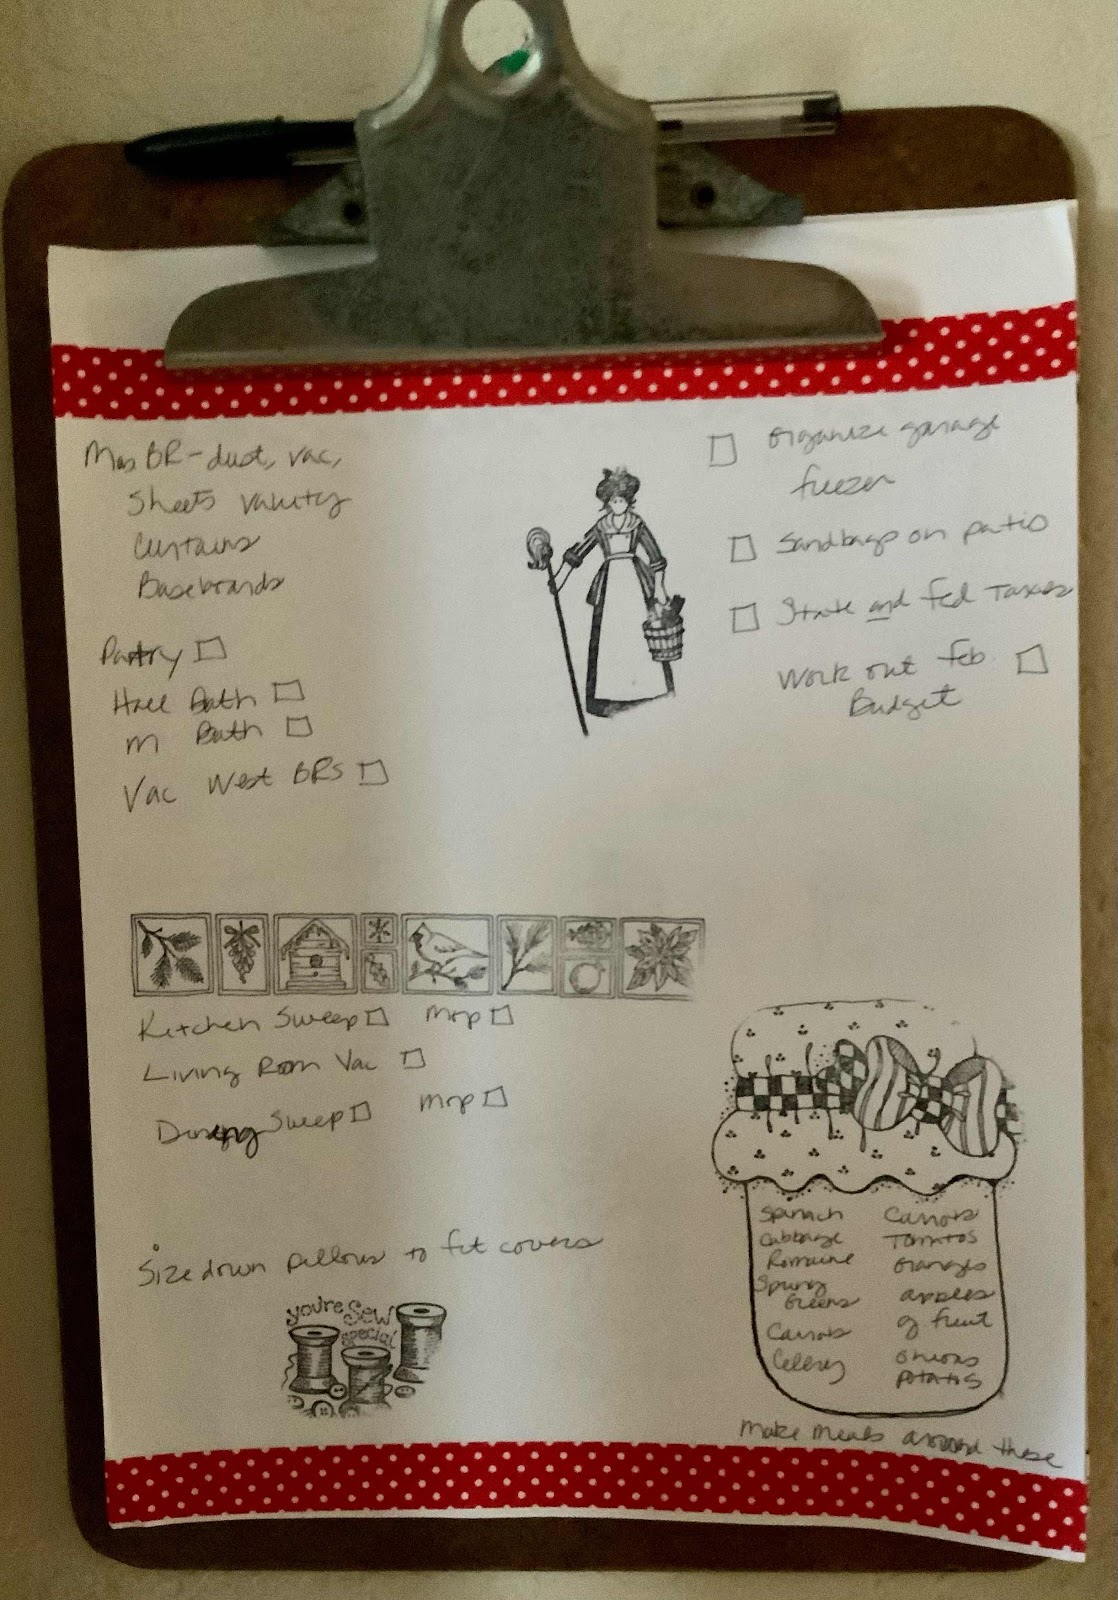 Mas BR - dust, vac,
Sheets Vanity
Curtains
Baseboards
Pantry
Hall Bath
M Bath
Vac West BRs
organize garage
freezer
Sandbags on patio
State and Fed Taxes
Work out Feb
Budget
Kitchen Sweep Mop
Living Room Vac
Dining Sweep Mop
Size down pillows to fit covers
you're sew
special
Spinach
Cabbage
Romaine
Spring
Greens
Carrots
Cellery
Carrots
Tomatos
oranges
apples
g fruit
onions
potatos
make meals around these